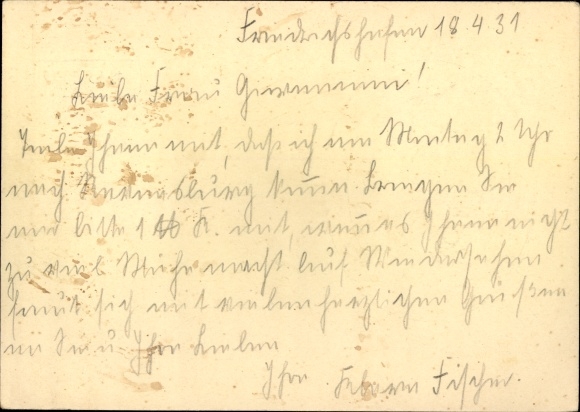 Friedrichshafen 18.4.31
Liebe Frau Germann!
Teile Ihnen mit, daß ich am Montag 2 Uhr
nach Ravensburg komm. Bringen Sie
mir bitte 1 ℔ K. mit, wenn es Ihnen nicht
zu viel Mühe macht. Auf Wiedersehen
freut sich mit vielen herzlichen Grüßen
an Sie u. Ihre Lieben
Ihre Fischer.